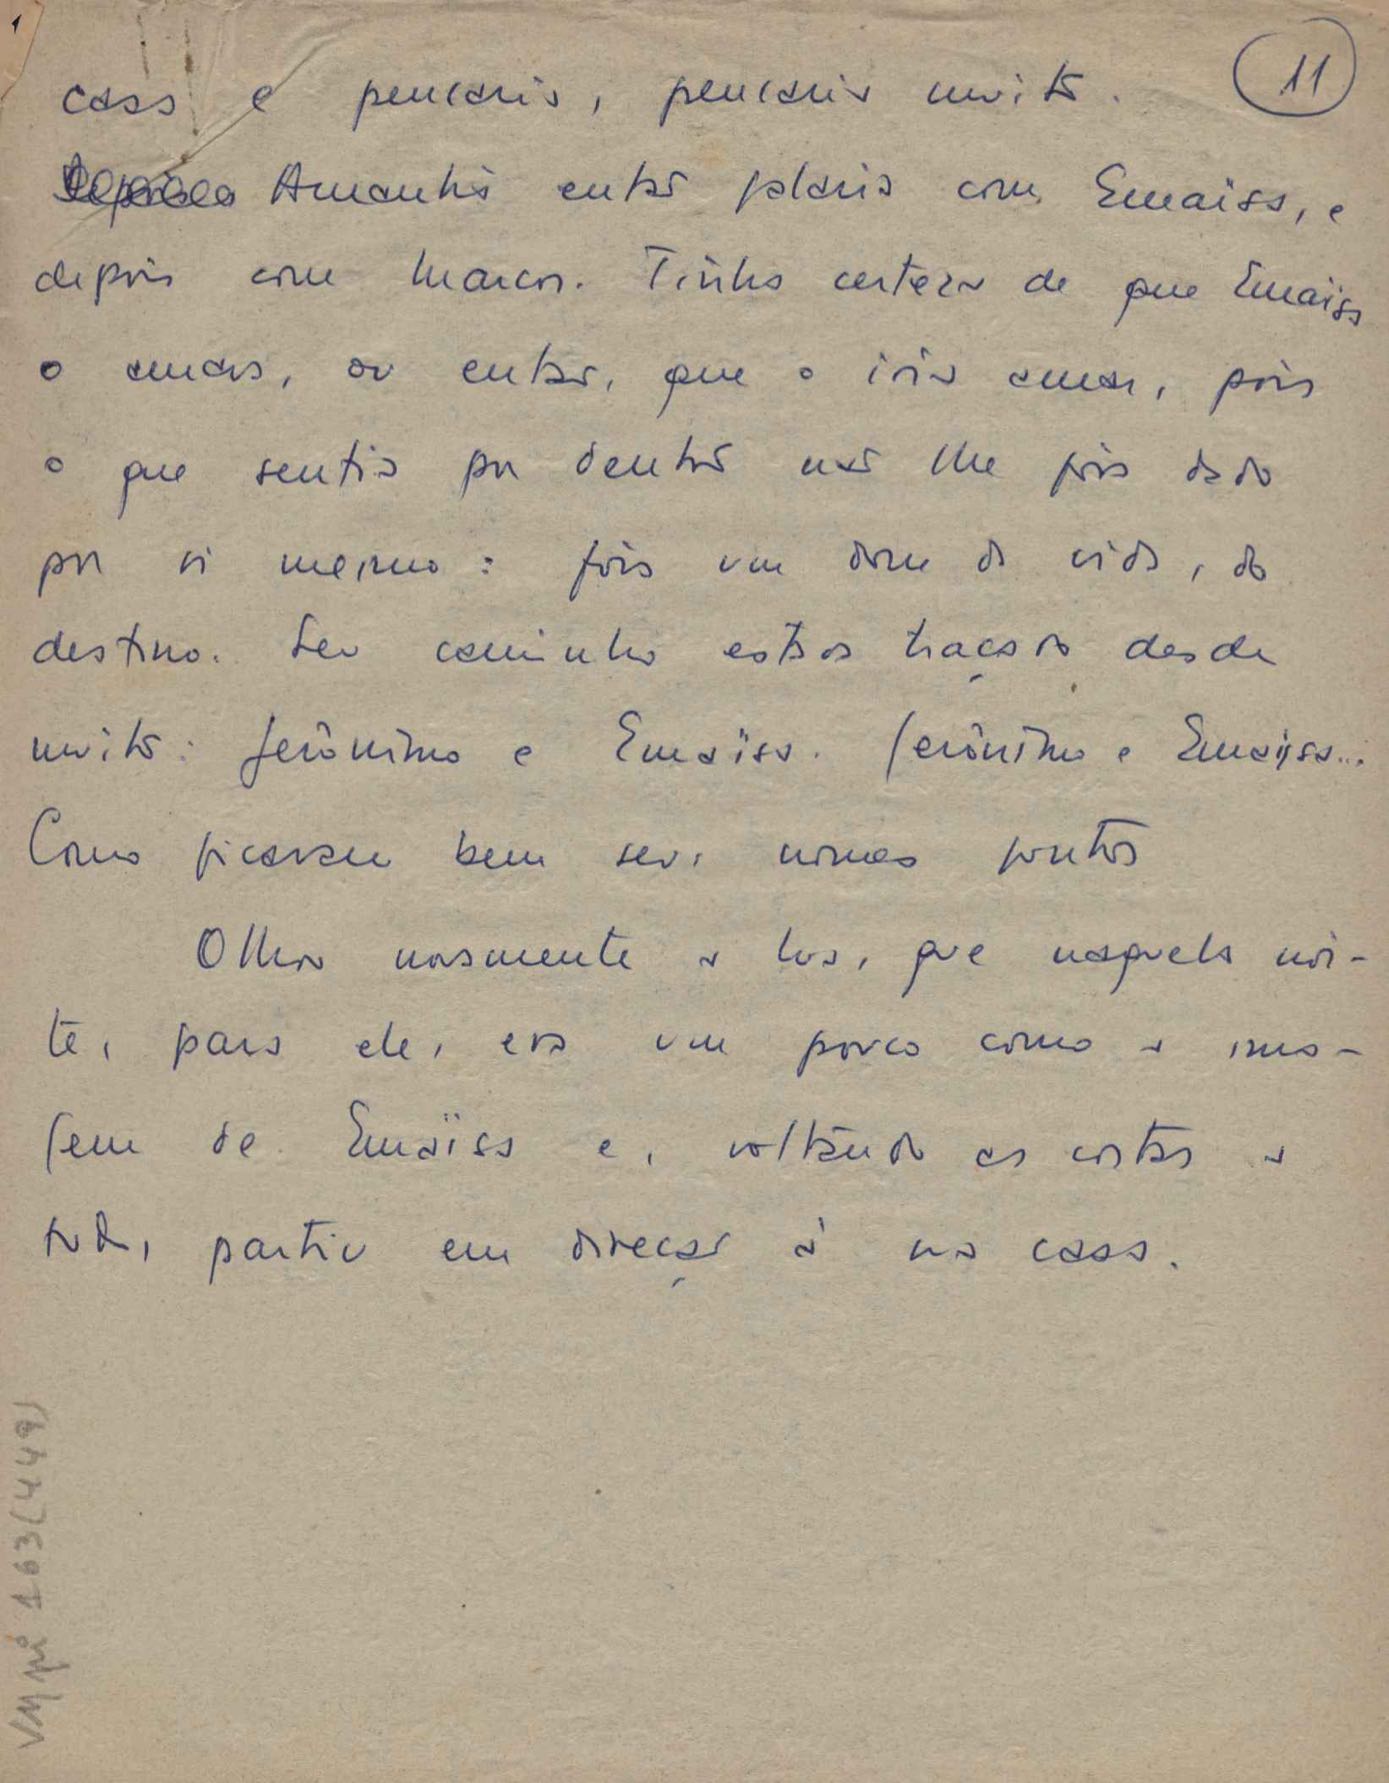 11
casa e pensaria, pensaria muito.
Amanhã então falaria com Emaísa, e
depois com Marcos. Tinha certeza de que Emaïsa
o amava, ou então, que o iria amar, pois
o que sentia por dentro não lhe fôra dado
por si mesmo: fôra um dom da vida, do
destino. Seu caminho estava traçado desde
muito: Jerônimo e Emaïsa. Jerônimo e Emaïsa...
Como ficavam bem seus nomes juntos
Olhou novamente a lua, que naquela noi-
te, para ele, era um pouco como a ima-
gem de Emaïsa e, voltando as costas a
tudo, partiu em direção à sua casa.
VMpi 163(449)